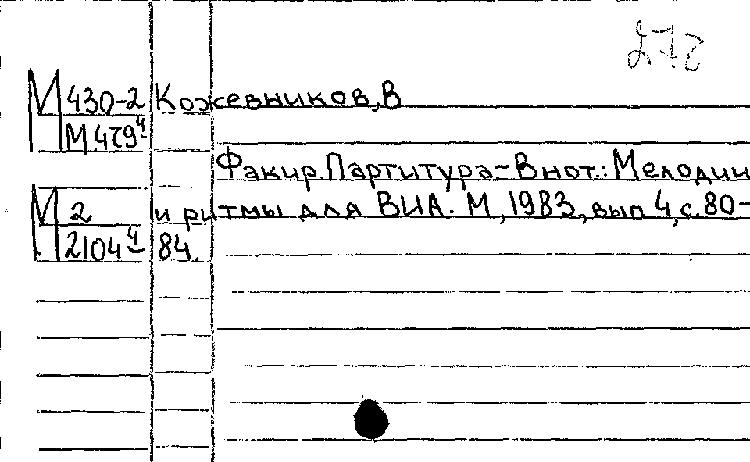 272
М 430-2 Кожевников, В
М 479ч
Факир. Партитура-В нот.: Мелодии
М 2 и ритмы для ВИА. М, 1983, вып 4, с. 80-
2104ч 84.